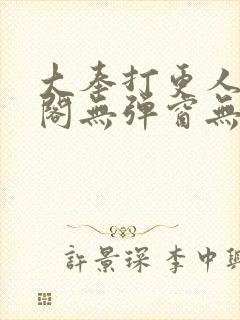 大奉打更人
閣無彈窗無
許景琛 李中興